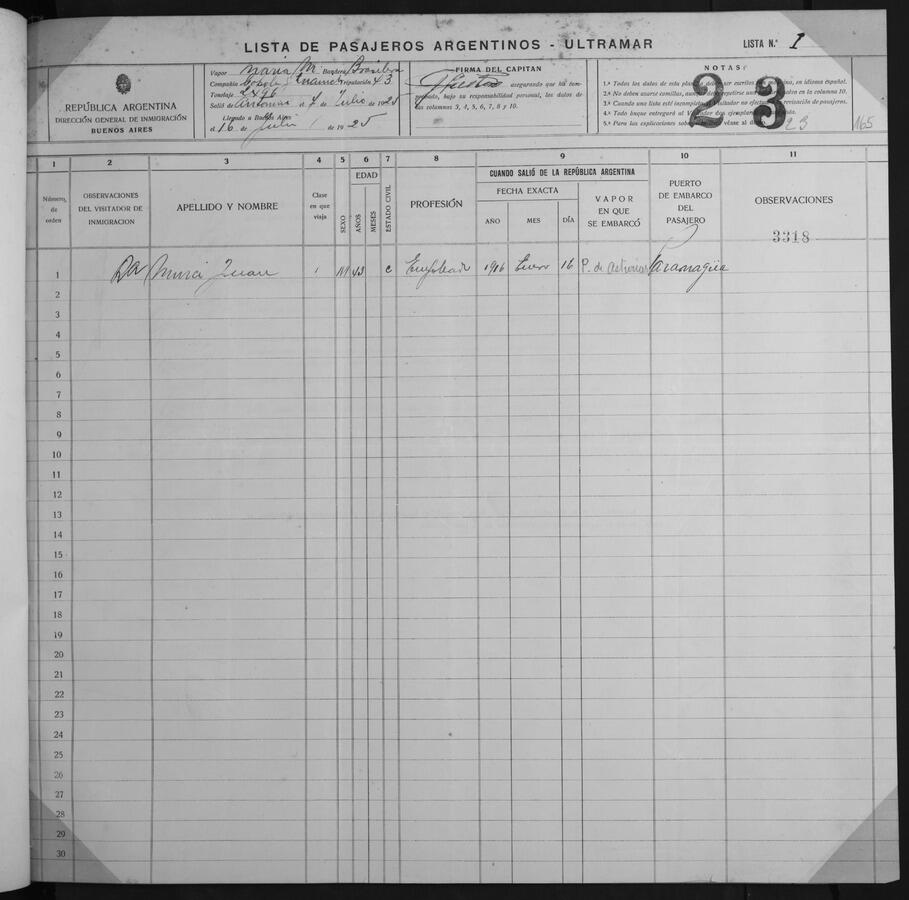 LISTA DE PASAJEROS ARGENTINOS - ULTRAMAR
LISTA N.º I
REPÚBLICA ARGENTINA
DIRECCIÓN GENERAL DE INMIGRACIÓN
BUENOS AIRES
Vapor Maria M. Bandera Brasilera
Compañía Tripulación 43
Tonelaje 2496
Salió de Antonina el 4 de Julio de 1925
Llegado a Buenos Aires
el 16 de Julio de 1925
FIRMA DEL CAPITAN
asegurando que ha com-
probado, bajo su responsabilidad personal, los datos de
las columnas 3, 4, 5, 6, 7, 8 y 10.
NOTAS
1.ª Todos los datos de esta ser escritos idioma Español.
2.ª No deben usarse comillas, repetirse en la columna 10.
3.ª Cuando una lista esté incompleta el Visitador no efectuará revisación de pasajeros.
4.ª Todo buque entregará al ejemplares
5.ª Para las explicaciones véase al
23
23
165
1
2
3
4
5
6
7
8
9
10
11
Número de orden
OBSERVACIONES DEL VISITADOR DE INMIGRACION
APELLIDO Y NOMBRE
Clase en que viaja
SEXO
EDAD
AÑOS
MESES
ESTADO CIVIL
PROFESIÓN
CUANDO SALIÓ DE LA REPÚBLICA ARGENTINA
FECHA EXACTA
AÑO
MES
DÍA
VAPOR EN QUE SE EMBARCÓ
PUERTO DE EMBARCO DEL PASAJERO
OBSERVACIONES
3318
1 Juan 1 M 43 C Empleado 1916 Enero 16 P. de Asturias Paranagua
2
3
4
5
6
7
8
9
10
11
12
13
14
15
16
17
18
19
20
21
22
23
24
25
26
27
28
29
30